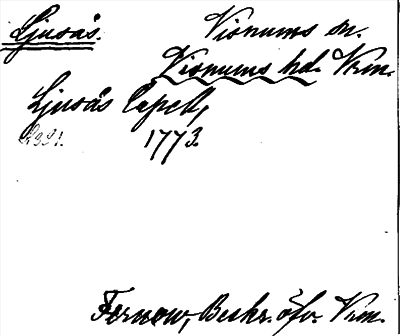 Ljusås. Visnums sn.
Visnums hd. Vrm.
Ljusås Capell,
1773.
Fernow, Beskr. öfv. Vrm.